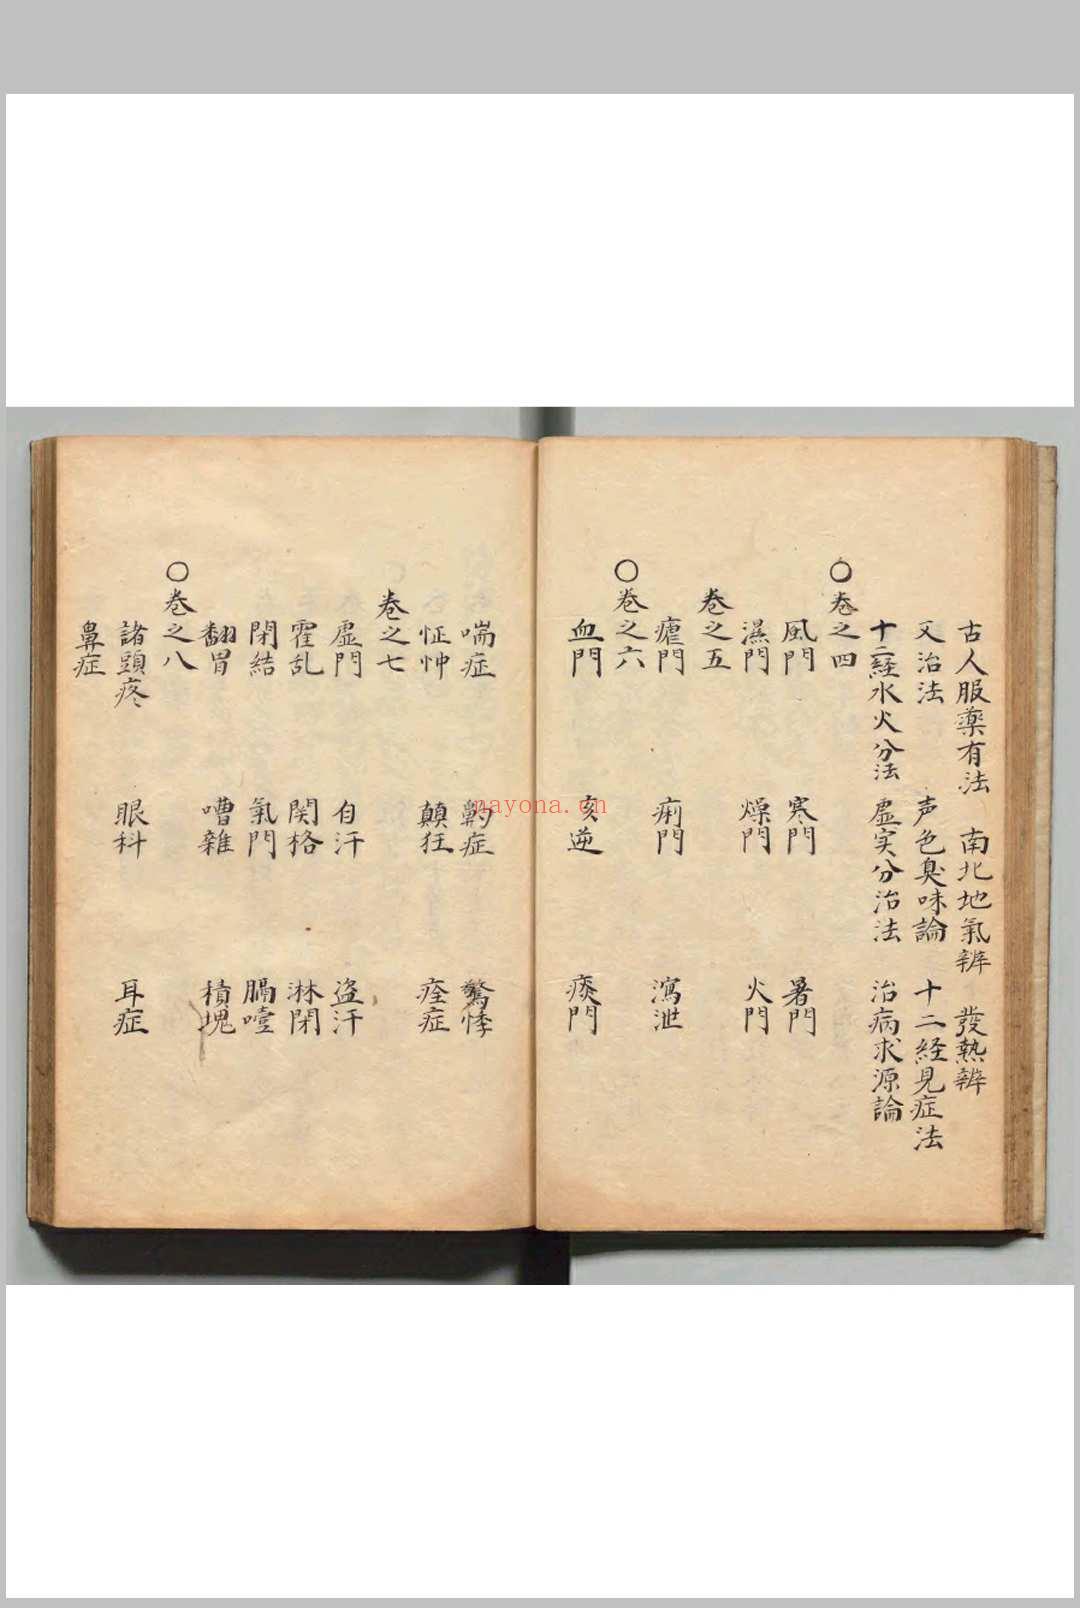 古人服薬有法 南北地氣辨 發熱辨
又治法 声色臭味論 十二経見症法
十二経水火分法 虚実分治法 治病求源論
〇巻之四
風門 寒門 暑門
濕門 燥門 火門
巻之五
瘧門 痢門 瀉泄
〇巻之六
血門 亥逆 痰門
喘症 驚悸
怔忡 顛狂 痊症
巻之七
虚門 自汗 盗汗
霍乱 関格 淋閉
閉結 氣門 膈噎
翻胃 嘈雜 積塊
〇巻之八
諸頭疼 眼科 耳症
鼻症
nayona.cn